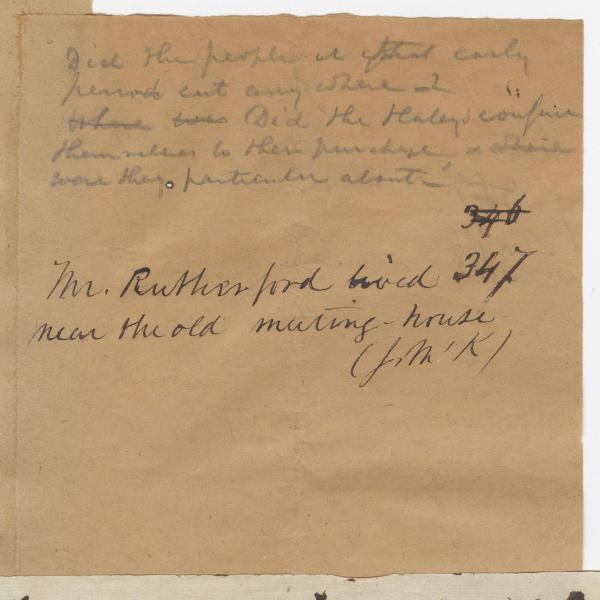 Did the people at that early
period cut any where -?
Where was Did the Haleys confine
themselves to their purchase &
were they particular about -
346
Mr. Rutherford lived 347
near the old meeting-house
(J. McK)